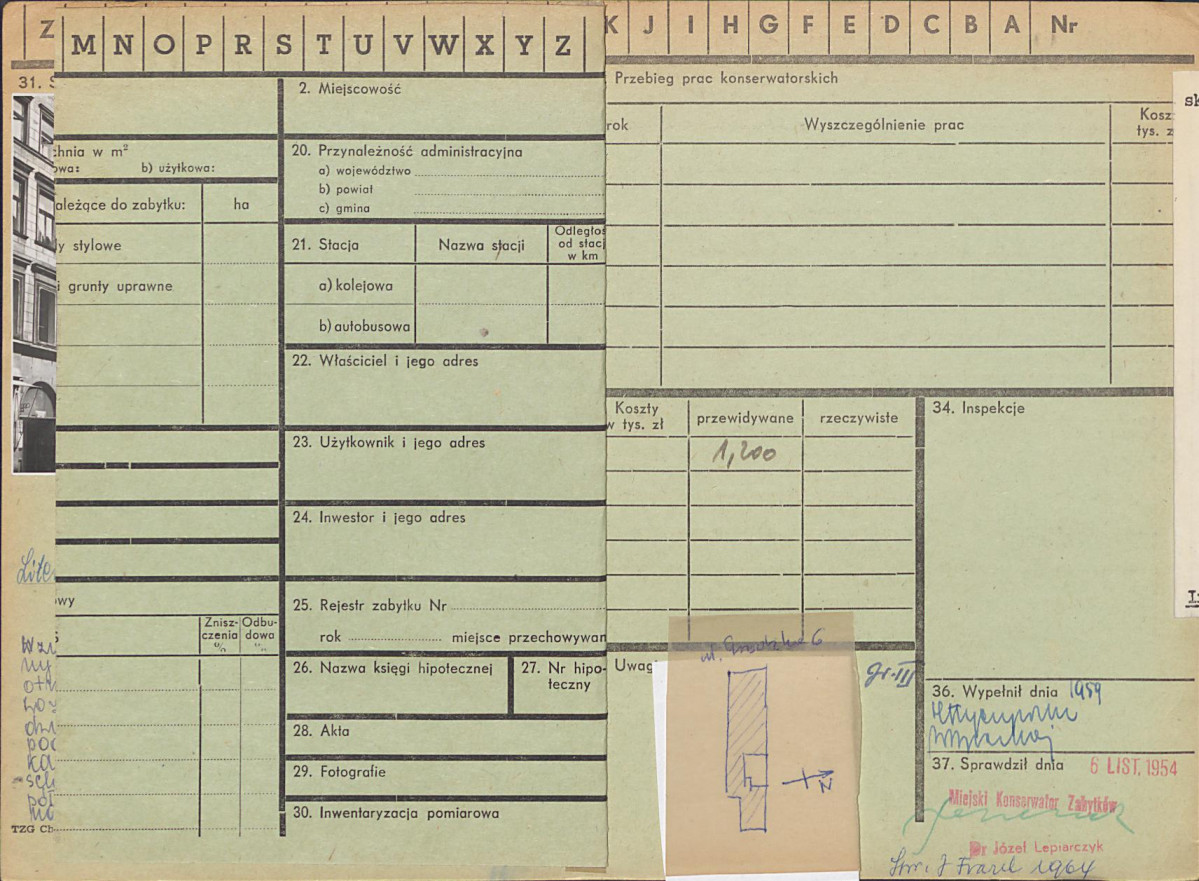 Z
M N O P R S T U V W X Y Z
K J I H G F E D C B A Nr
31. S
2. Miejscowość
chnia w m²
owa: b) użytkowa:
ależące do zabytku: ha
y stylowe
i grunty uprawne
20. Przynależność administracyjna
a) województwo
b) powiat
c) gmina
21. Stacja Nazwa stacji Odległoś
od stacj
w km
a) kolejowa
b) autobusowa
22. Właściciel i jego adres
23. Użytkownik i jego adres
24. Inwestor i jego adres
25. Rejestr zabytku Nr
rok miejsce przechowywan
26. Nazwa księgi hipotecznej 27. Nr hipo-
teczny
28. Akta
29. Fotografie
30. Inwentaryzacja pomiarowa
owy
Znisz-
czenia
%
Odbu-
dowa
%
TZG Ch
Przebieg prac konserwatorskich
rok Wyszczególnienie prac Kosz
tys. z
Koszty
w tys. zł przewidywane rzeczywiste
1,200
34. Inspekcje
Uwag
ul. Grodzka 6
N
gr. III
36. Wypełnił dnia 1959
37. Sprawdził dnia 6 LIST. 1954
Miejski Konserwator Zabytków
Dr Józef Lepiarczyk
1964
sk